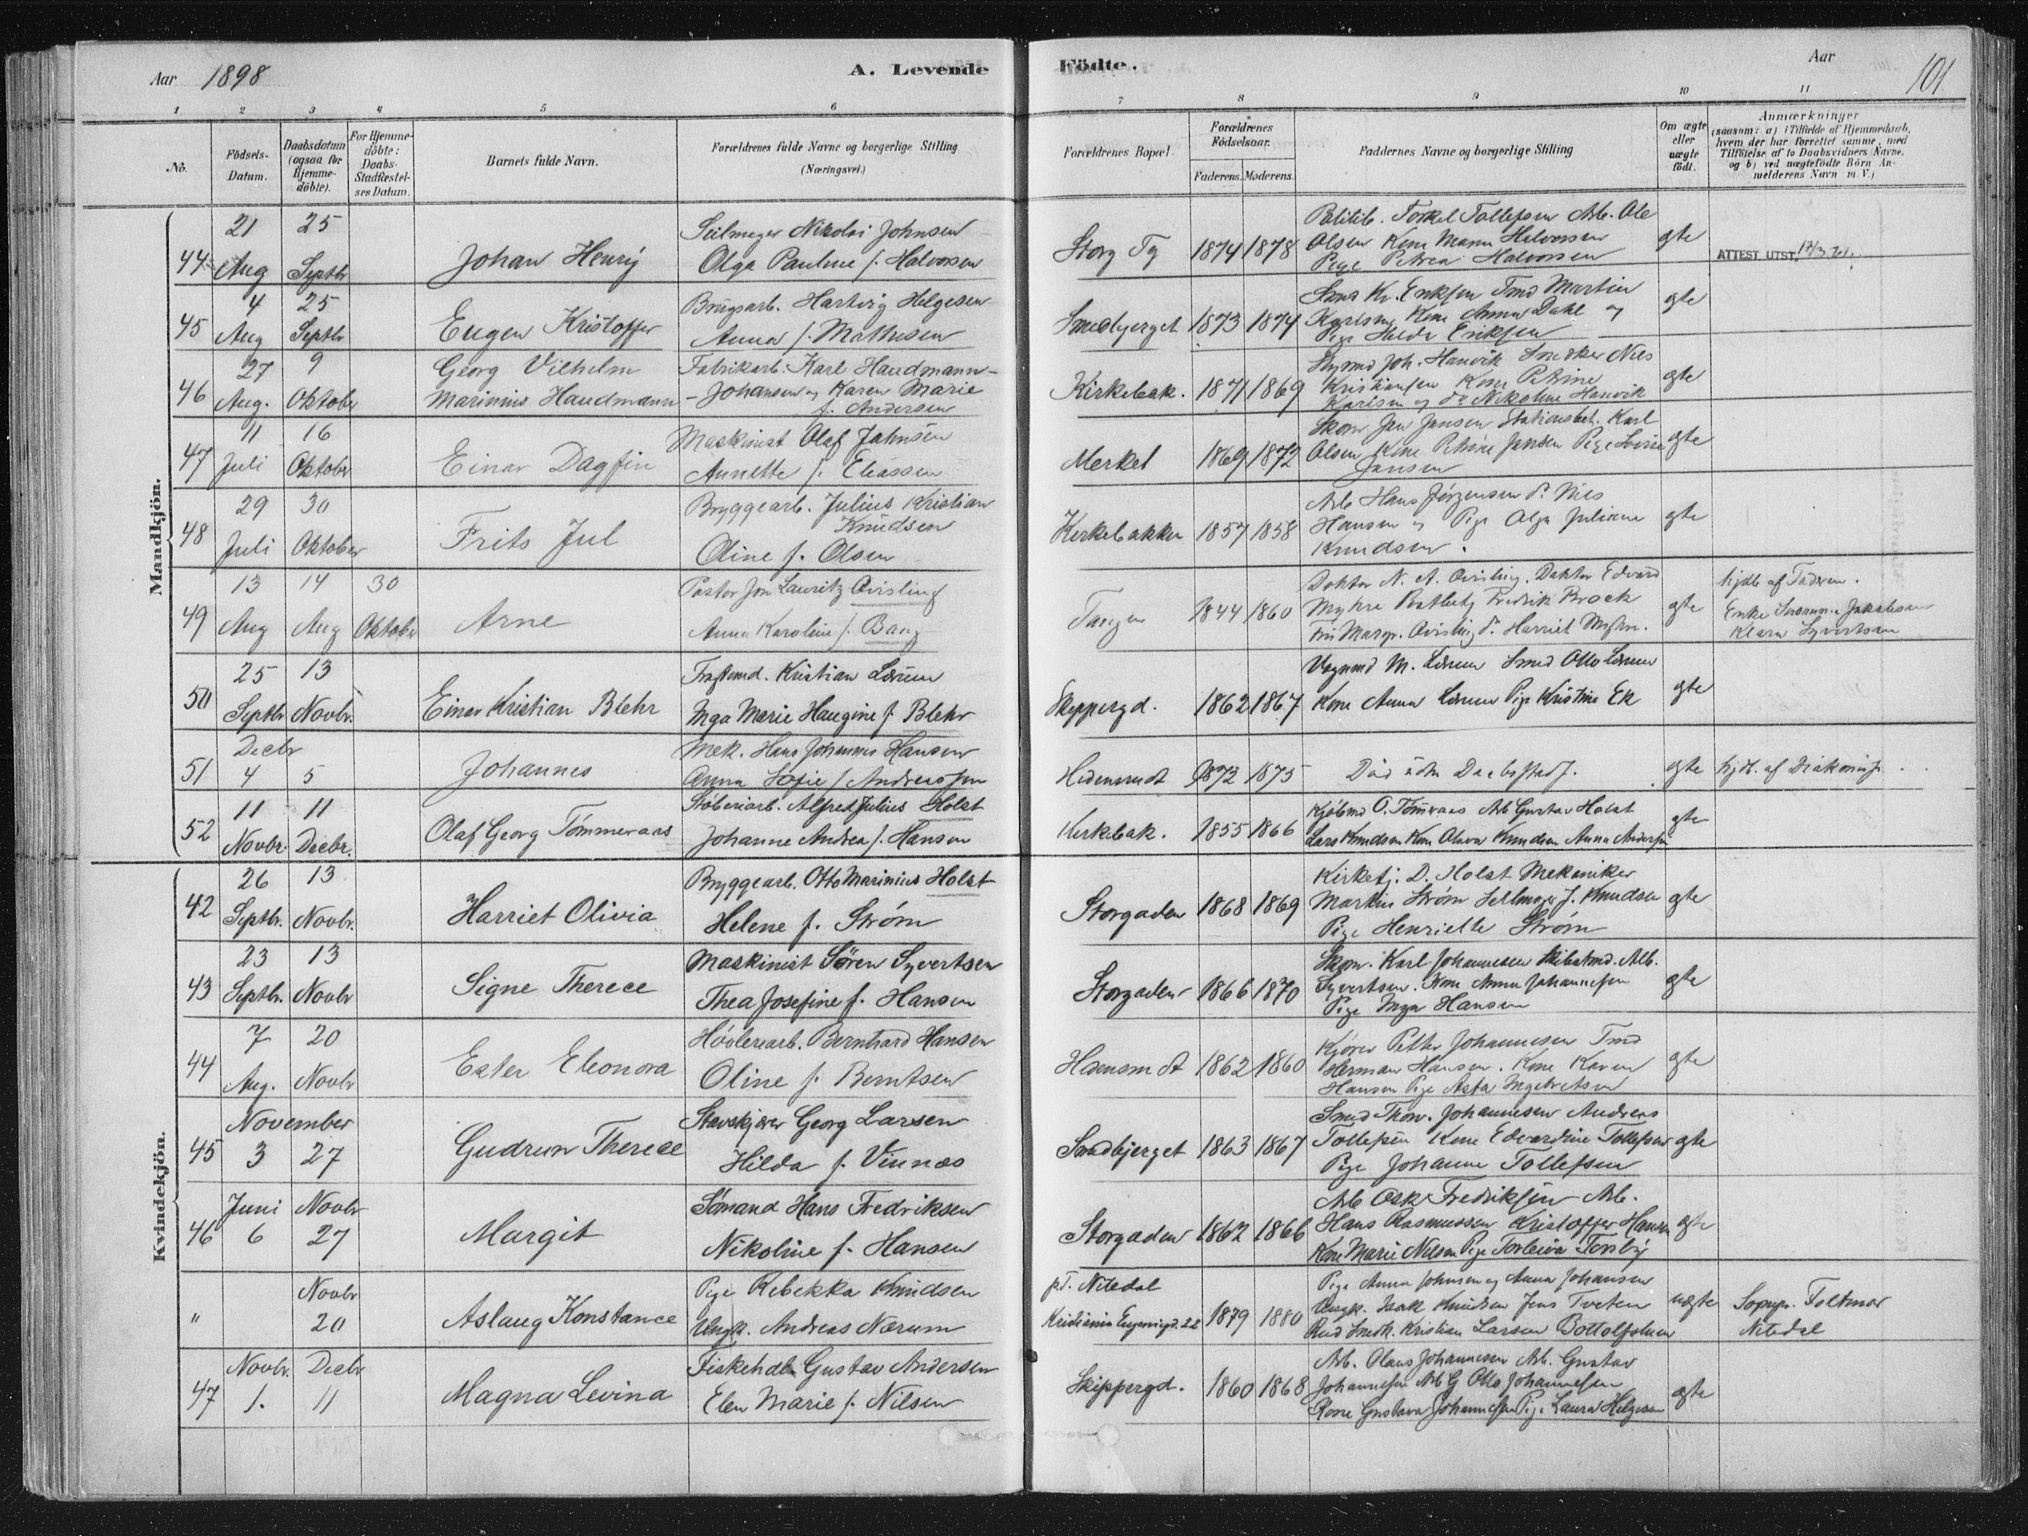 Aar 1898
A. Levende
Fødte.
Aar
101
1 2 3 4 5 6 7 8 9 10 11
No.
Fødsels-
Datum.
Daabsdatum
(ogsaa for
Hjemme-
døbte).
For Hjemme-
døbte:
Daabs-
Stadfæstel-
ses Datum.
Barnets fulde Navn.
Forældrenes fulde Navne og borgerlige Stilling
(Næringsvei.)
Forældrenes Bopæl.
Forældrenes
Fødselsaar.
Faderens. Moderens.
Faddernes Navne og borgerlige Stilling
Om ægte
eller
uægte
født.
Anmærkninger
(saasom: a) i Tilfælde af Hjemmedaab,
hvem der har forrettet samme, med
Tilføielse af to Daabsvidners Navne,
og b) ved uægtefødte Børn An-
melderens Navn m. V.)
Mandkjön.
44 21 Aug 25 Septbr
Johan Henry
Seilmager Nikolai Johnsen
Olga Pauline f. Halvorsen
Storg 1874 1878
Torkel Tollefsen Arb. Ole
Olsen Kone Maren Halvorsen
Pige Petrea Halvorsen
ægte
ATTEST UTST.
45 4 Aug 25 Septbr
Eugen Kristoffer
Brugsarb. Hartvig Helgesen
Anna f. Mathisen
Smedbjerget 1873 1874
Kr. Eriksen Tmd Martin
Karlsen Kone Anna Dahl og
Pige Hilda Eriksen
ægte
46 27 Aug. 9 Oktober
Georg Vilhelm
Marinius Haudmann
Fabrikarb. Karl Haudmann-
Johansen og Karen Marie
f. Andersen
Kirkebak. 1871 1869
Joh. Hanvik Snedker Niels
Kristiansen Kone Petrine
Karlsen og do Nikoline Hanvik
ægte
47 11 Juli 16 Oktober
Einar Dagfin
Maskinist Olaf Jahnsen
Annette f. Eliassen
Merket 1869 1872
Skom Jan Jansen Stationsbet. Karl
Olsen Kone Petrine Jansen Pige Lovise
Jansen
ægte
48 29 Juli 30 Oktober
Frits Jul
Bryggearb. Julius Kristian
Knudsen
Oline f. Olsen
Kirkebakken 1857 1858
Arb Hans Jørgensen do Nils
Hansen og Pige Olga Juliane
Knudsen.
ægte
49 13 Aug 14 Aug 30 Oktober
Arne
Pastor Jon Lauritz Qvisling
Anna Karoline f. Bang
Tangen 1844 1860
Doktor N. A. Qvisling. Doktor Edvard
Myhre Fredrik Brock
Fru Margr. Qvisling do Harriet Myhre.
ægte
Hjdb af Faderen.
Enke Jakobsen
Klara Syvertsen
50 25 Septbr 13 Novbr.
Einar Kristian Blehr
Kristian Lærum
Inga Marie Haugine f. Blehr
Skippergd. 1862 1867
Vognmd M. Lærum Smed Otto Lærum
Kone Anna Lærum Pige Kristine Ek
ægte
51 Decbr 4 5
Johannes
Mek. Hans Johannes Hansen
Anna Sofie f Andreassen
Hedensrudt 1872 1875
Død uden Daabsstadf.
ægte
Hjdb. af Diakonisse
52 11 Novbr. 11 Decbr.
Olaf Georg Tømmeraas
Støberiarb. Alfred Julius Holst
Johanne Andrea f. Hansen
Kirkebak. 1855 1866
Kjøbmd O. Tømraas Arb Gustav Holst
Lars Knudsen Kone Olava Knudsen Anna Andersen
ægte
Kvindekjön.
42 26 Septbr. 13 Novbr.
Harriet Olivia
Bryggearb. Otto Marinius Holst
Helene f. Strøm
Storgaden 1868 1869
Kirketj. D. Holst Mekaniker
Markus Strøm Seilmager J. Knudsen
Pige Henriette Strøm
ægte
43 23 Septbr. 13 Novbr
Signe Therece
Maskinist Søren Syvertsen
Thea Josefine f. Hansen
Storgaden 1866 1870
Skom. Karl Johannesen Skibstmd. Alb.
Syvertsen. Kone Anna Johannesen
Pige Inga Hansen
ægte
44 7 Aug. 20 Novbr
Ester Eleonora
Høvleriarb. Bernhard Hansen
Oline f. Berntsen
1862 1860
Kjører Petter Johannesen Tmd
Herman Hansen. Kone Karen
Hansen Pige Asta Ingebretsen
ægte
45 November 3 27
Gudrun Therece
Stavskjører Georg Larsen
Hilda f. Vinnæs
Sandbjerget 1863 1867
Smed Thorv. Johannesen Andreas
Tollefsen Kone Edvardine Tollefsen
Pige Johanne Tollefsen
ægte
46 Juni 6 Novbr 27
Margit
Sømand Hans Fredriksen
Nikoline f. Hansen
Storgaden 1862 1866
Arb Osk. Fredriksen Arb.
Hans Rasmussen Kristoffer Hansen
Kone Marie Nilsen Pige Torleiva Torsby
ægte
" Novbr 20
Aslaug Konstance
Pige Rebekka Knudsen
Ungk. Andreas Nærum
pT. Nitedal
Kristiania 22
1879 1880
Pige Anna Johnsen og Anna Johansen
Ungk. Isak Knudsen Jens Tveten
Kristian Larsen
uægte
Sognpr. Foltmar
Nitedal
47 Novbr. 1. Decbr 11
Magna Levina
Fiskehdl. Gustav Andersen
Elen Marie f. Nilsen
Skippergd. 1860 1868
Arb. Olaus Johannesen Arb. Gustav
Johannesen Arb G Otto Johannesen
Kone Gustava Johannesen Pige Laura Helgesen
ægte